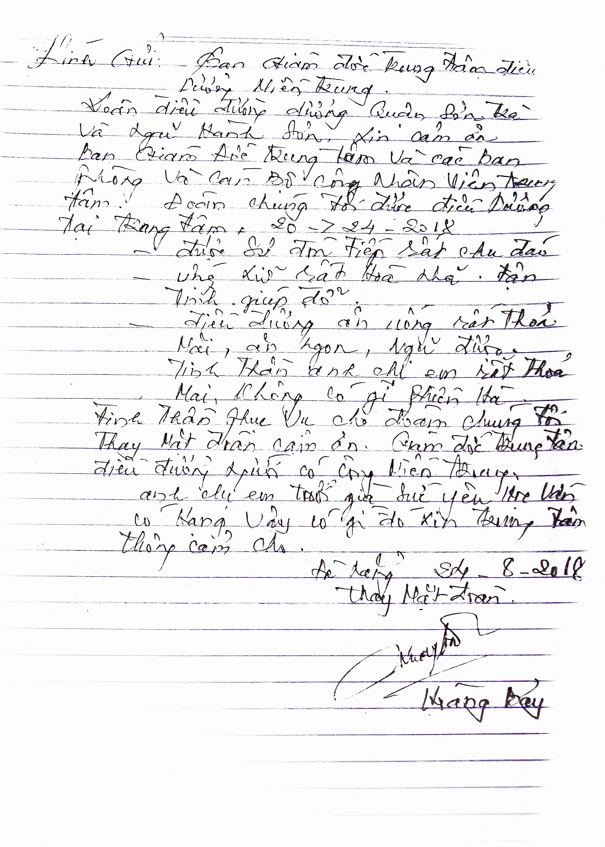 Kính Gửi: Ban Giám đốc trung tâm điều
Dưỡng Miền trung.
Đoàn điều dưỡng dưỡng Quận Sơn trà
Và Ngũ Hành Sơn, xin cảm ơn
Ban Giám Đốc trung tâm Và các ban
Phòng Và Cán Bộ công Nhân Viên trung
tâm. Đoàn chúng tôi được điều Dưỡng
tại trung tâm, 20 - 7 24 - 2018
- được Sự đón tiếp rất chu đáo
- rất Hoà Nhã. tận
tình giúp đỡ.
- điều dưỡng ăn uống rất thoả
Mái, ăn ngon, Ngủ được.
tinh thần anh chị em rất thoả
Mái, không có gì phiền Hà.
tinh thần phục Vụ cho đoàn chúng tôi
thay Mặt đoàn cảm ơn. Giám đốc trung tâm
điều dưỡng người có công Miền trung,
anh chị em tuổi già sức yếu
có Vậy có gì đó xin trung tâm
thông cảm cho.
Đà Nẵng 24 - 8 - 2018
thay Mặt đoàn.
Hoàng Bảy